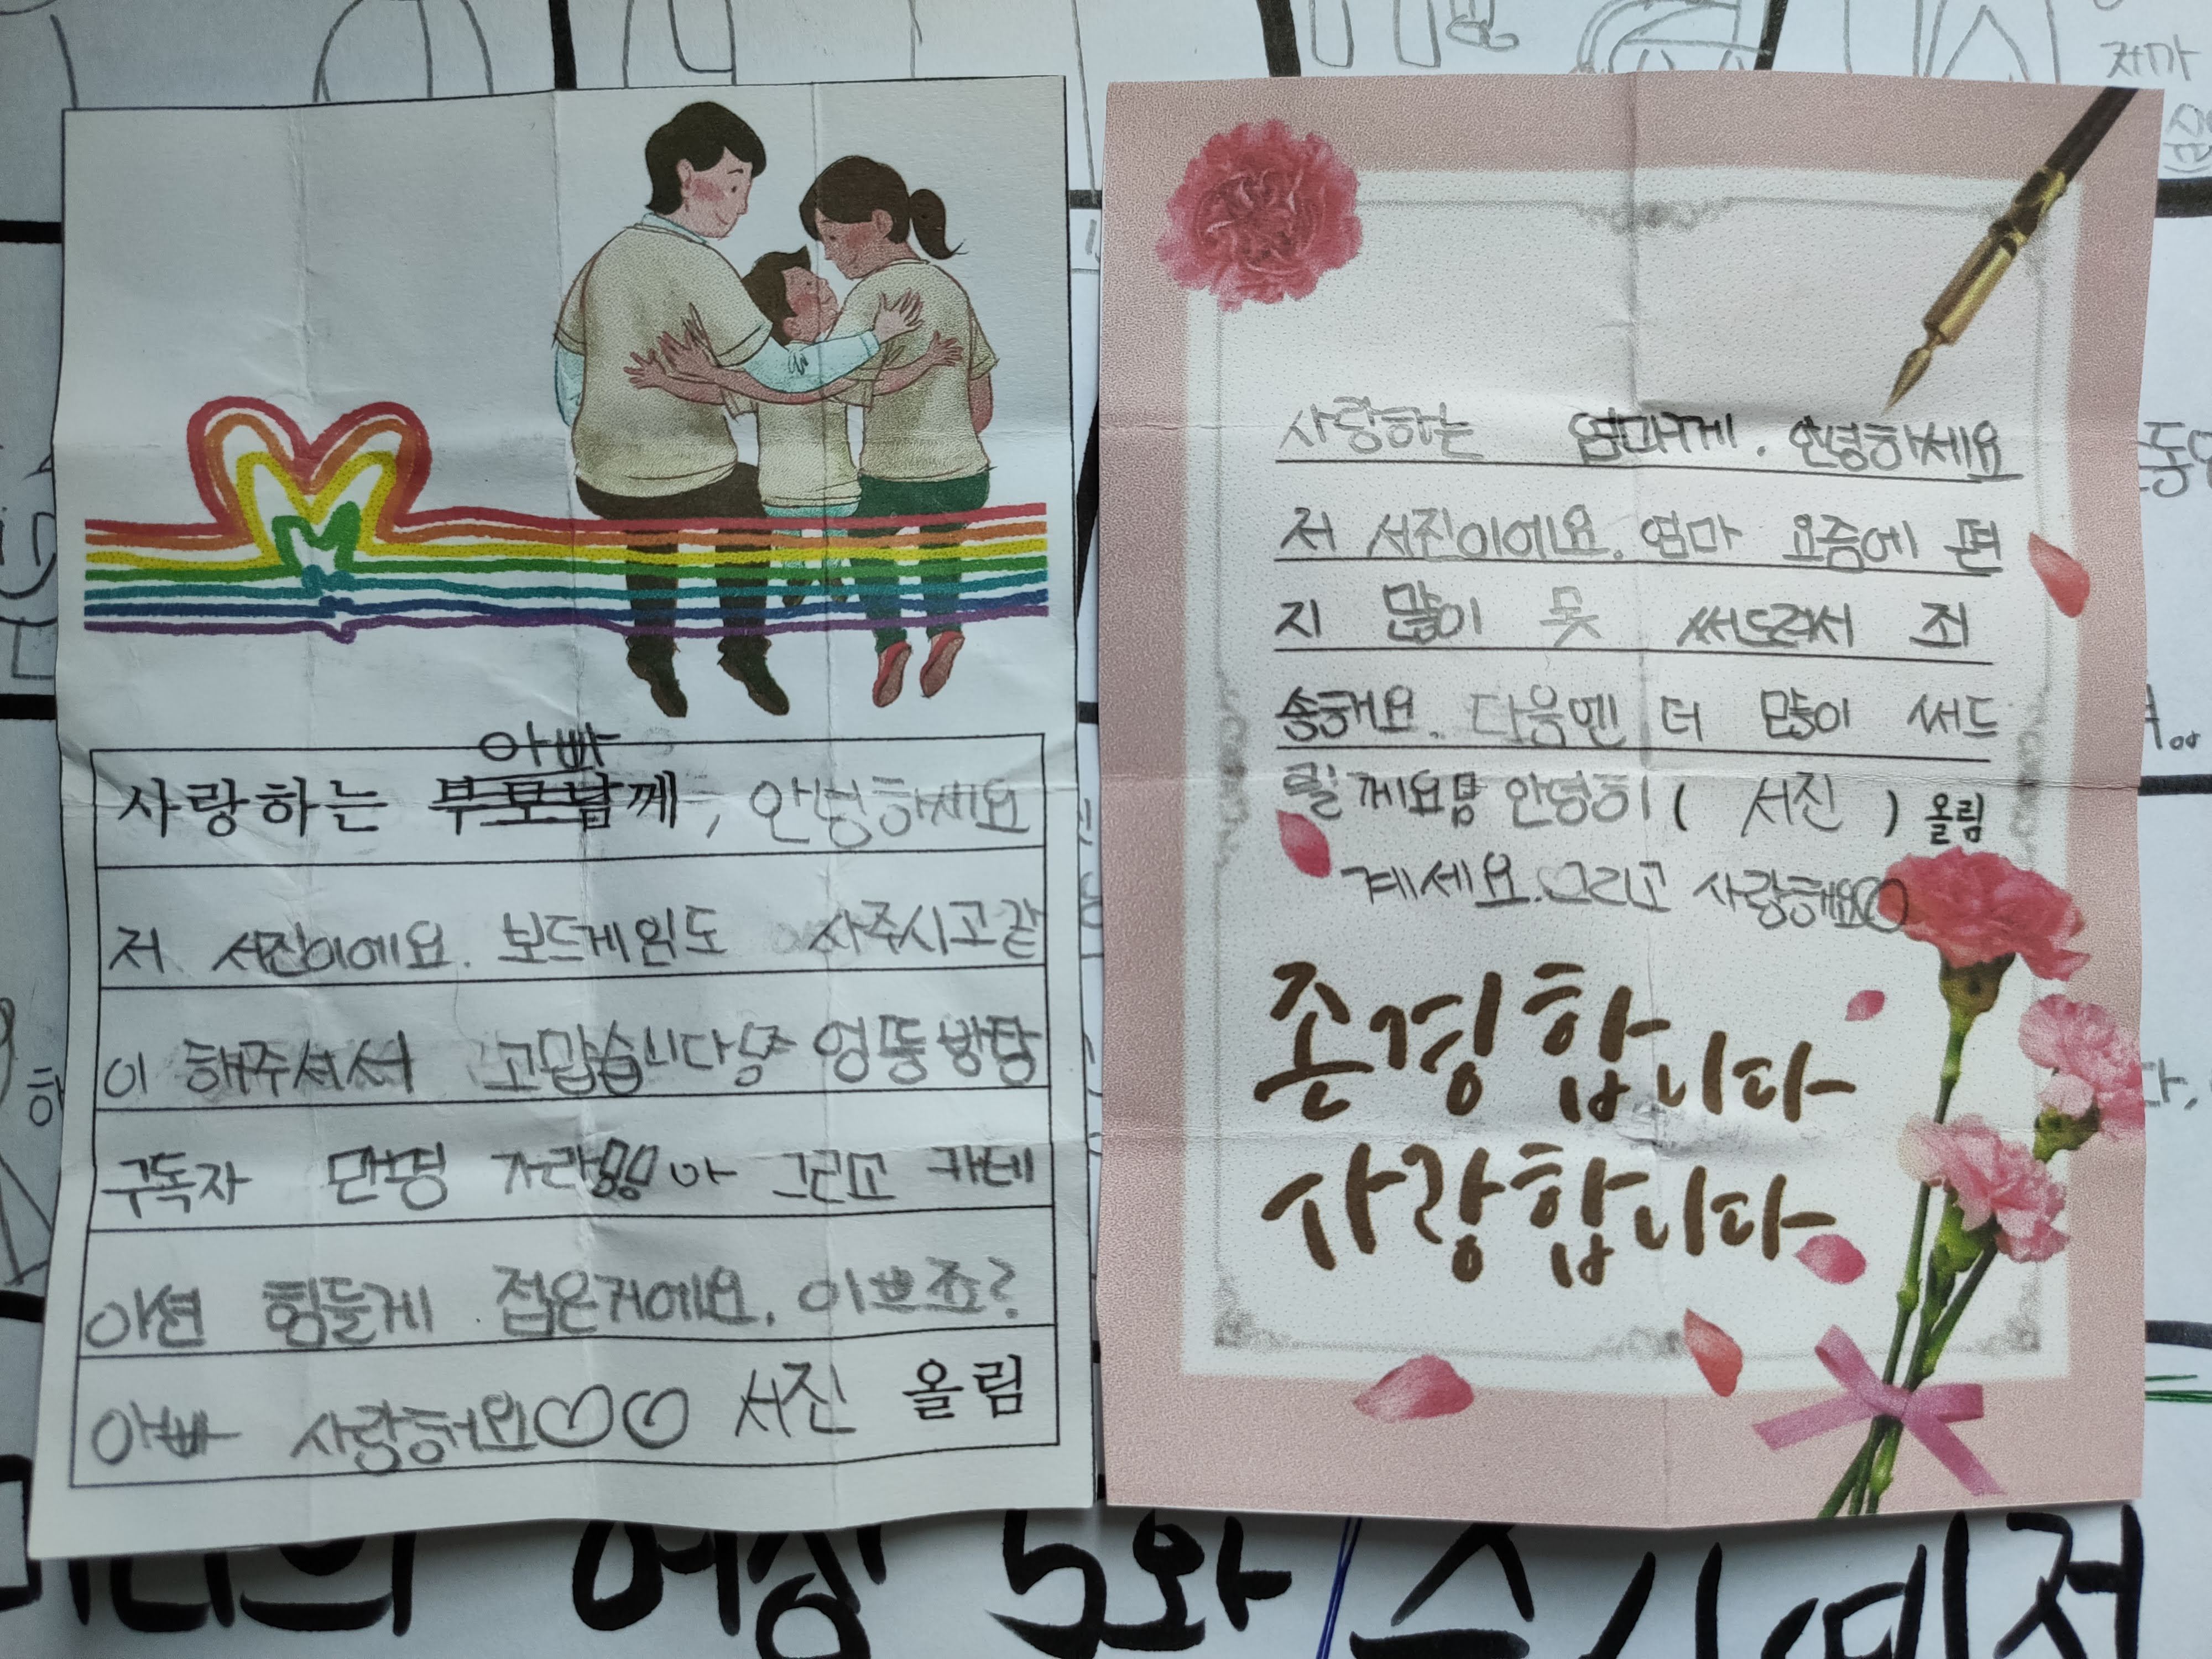 아빠
사랑하는 부모님께, 안녕하세요
저 서진이에요. 보드게임도 사주시고 같
이 해주셔서 고맙습니다 엉뚱방탕
구독자 만명 자랑 아 그리고 카네
이션 힘들게 접은거에요. 이쁘죠?
아빠 사랑해요♡♡ 서진 올림
사랑하는 엄마께. 안녕하세요
저 서진이에요. 엄마 요즘에 편
지 많이 못 써드려서 죄
송해요. 다음엔 더 많이 써드
릴게요 안녕히 ( 서진 ) 올림
계세요. 그리고 사랑해요♡
존경합니다
사랑합니다
저까